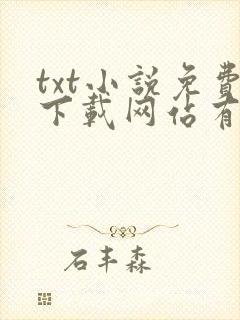 txt小説免費
下載网佔有
石丰森